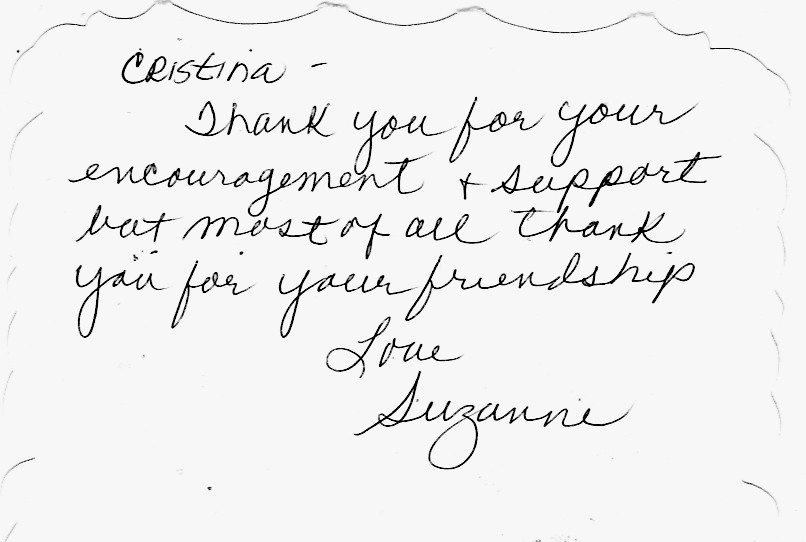 Cristina -
Thank you for your
encouragement + support
but most of all thank
you for your friendship
Love
Suzanne